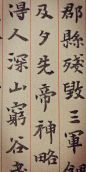 郡縣殘毀三軍
及夕先帝神略
得人深山窮谷